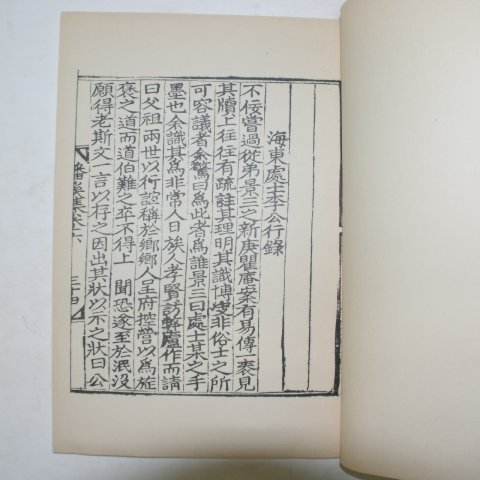 海東處士李公行錄
不佞嘗過從弟景三之新庚瞿庵案有易傳一表見
其牘上往往有疏註其理明其識博決非俗士之所
可容議者余驚曰爲此者爲誰景三曰處士某之手
墨也余識其爲非常人日族人孝賢訪弊廬作而請
曰父祖兩世以行誼稱於鄕鄕人呈府控營以爲㫌
褒之道而道伯難之卒不得上 聞恐遂至於泯沒
願得老斯文一言以存之因出其狀以示之狀曰公
集卷之六 三十四